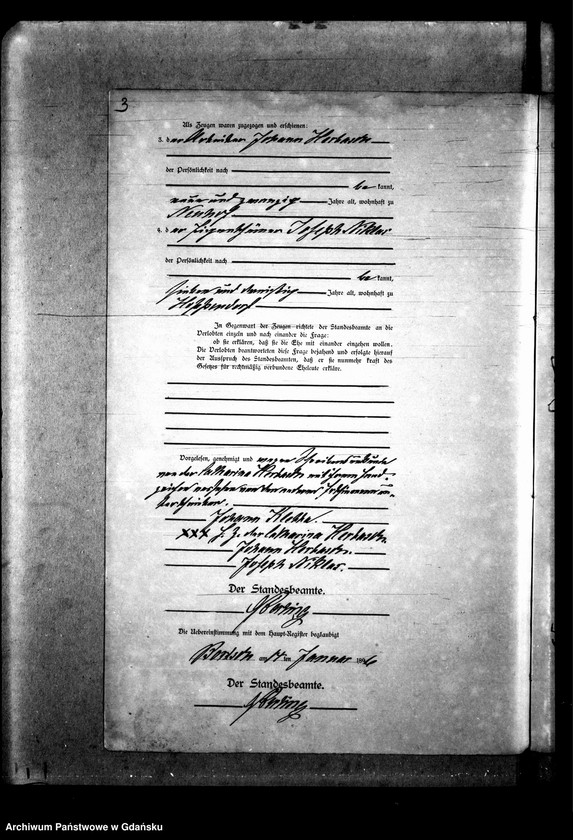 3
Als Zeugen waren zugezogen und erschienen:
3. der Arbeiter Johann
der Persönlichkeit nach
be kannt,
neun und zwanzig Jahre alt, wohnhaft zu
Neuhof
4. der Eigenthümer Joseph Niklas
der Persönlichkeit nach
be kannt,
sieben und dreißig Jahre alt, wohnhaft zu
In Gegenwart der Zeugen richtete der Standesbeamte an die
Verlobten einzeln und nach einander die Frage:
ob sie erklären, daß sie die Ehe mit einander eingehen wollen.
Die Verlobten beantworteten diese Frage bejahend und erfolgte hierauf
der Ausspruch des Standesbeamten, daß er sie nunmehr kraft des
Gesetzes für rechtmäßig verbundene Eheleute erkläre.
Vorgelesen, genehmigt und wegen Schreibensunkunde
von der Catharina mit ihrem Hand-
zeichen versehen von den anderen Erschienenen un-
terschrieben.
Johann
xxx H. Z. der Catharina
Johann
Joseph Niklas.
Der Standesbeamte.
Die Uebereinstimmung mit dem Haupt-Register beglaubigt
am ten Januar 18
Der Standesbeamte.
Archiwum Państwowe w Gdańsku